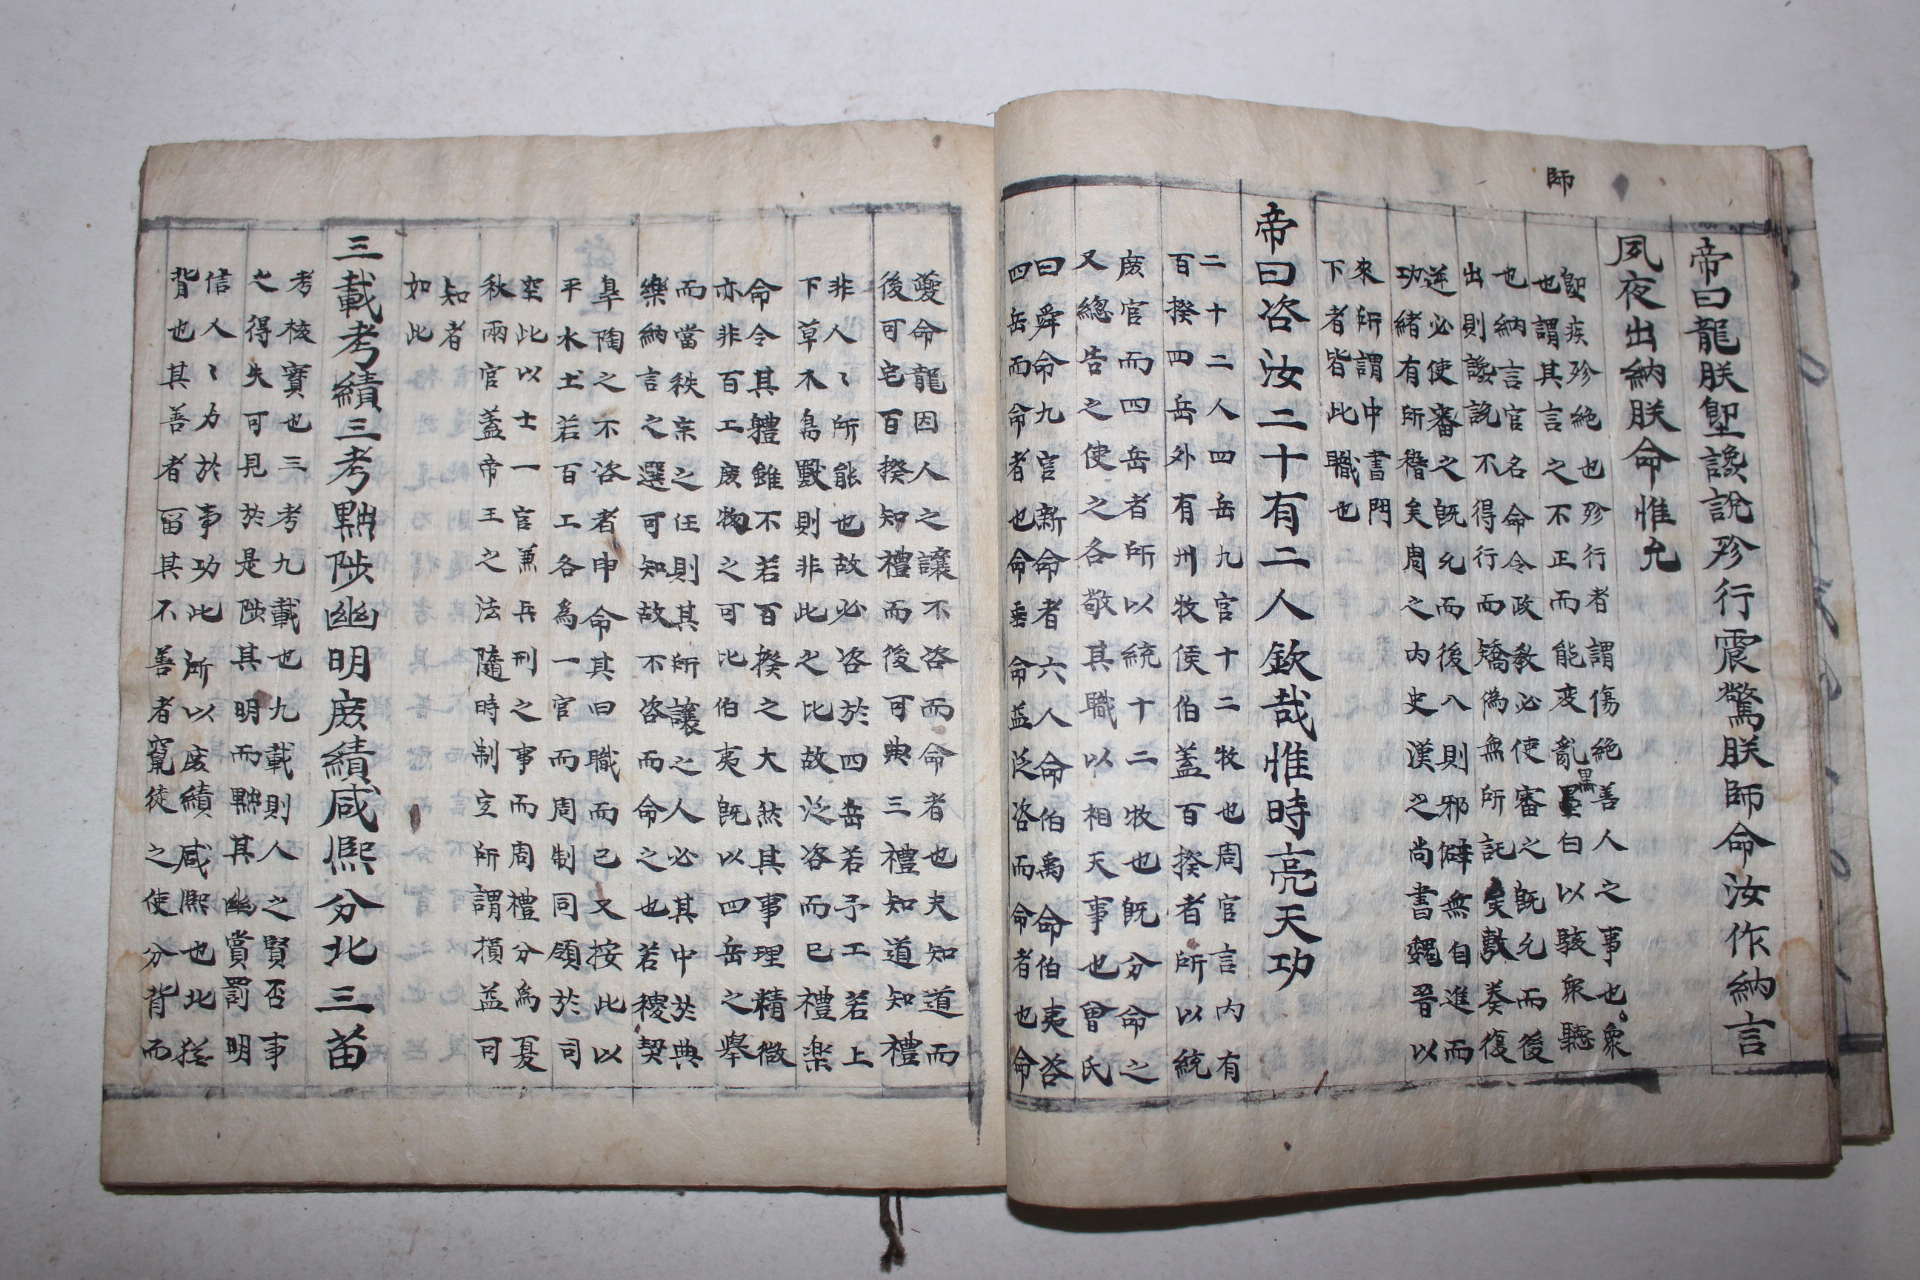 師
帝曰龍朕堲讒說殄行震驚朕師命汝作納言
夙夜出納朕命惟允
堲疾殄絶也殄行者謂傷絶善人之事也衆
也謂其言之不正而能変亂黒白以駭衆聽
也納言官名命令政教必使審之既允而後
出則讒說不得行而矯偽無所託矣敷奏復
逆必使審之既允而後入則邪僻無自進而
功緒有所稽矣周之内史漢之尚書魏晉以
來所謂中書門
下者皆此職也
帝曰咨汝二十有二人欽哉惟時亮天功
二十二人四岳九官十二牧也周官言内有
百揆四岳外有州牧侯伯蓋百揆者所以統
庶官而四岳者所以統十二牧也既分命之
又總告之使之各敬其職以相天事也曾氏
曰舜命九官新命者六人命伯禹命伯夷咨
四岳而命者也命垂命益泛咨而命者也命
夔命龍因人之讓不咨而命者也夫知道而
後可宅百揆知禮而後可典三禮知道知禮
非人〻所能也故必咨於四岳若予工若上
下草木鳥獸則非此之比故泛咨而已禮楽
命令其體雖不若百揆之大然其事理精微
亦非百工庶物之可比伯夷既以四岳之舉
而當秩宗之任則其所讓之人必其中於典
樂納言之選可知故不咨而命之也若稷契
皐陶之不咨者申命其曰職而已又按此以
平水土若百工各為一官而周制同領於司
空此以士一官兼兵刑之事而周禮分為夏
秋兩官蓋帝王之法隨時制宜所謂損益可
知者
如此
三載考績三考黜陟幽明庶績咸熙分北三苗
考核實也三考九載也九載則人之賢否事
之得失可見於是陟其明而黜其幽賞罰明
信人〻力於事功此所以庶績咸熙也北猶
背也其善者留其不善者竄徙之使分背而